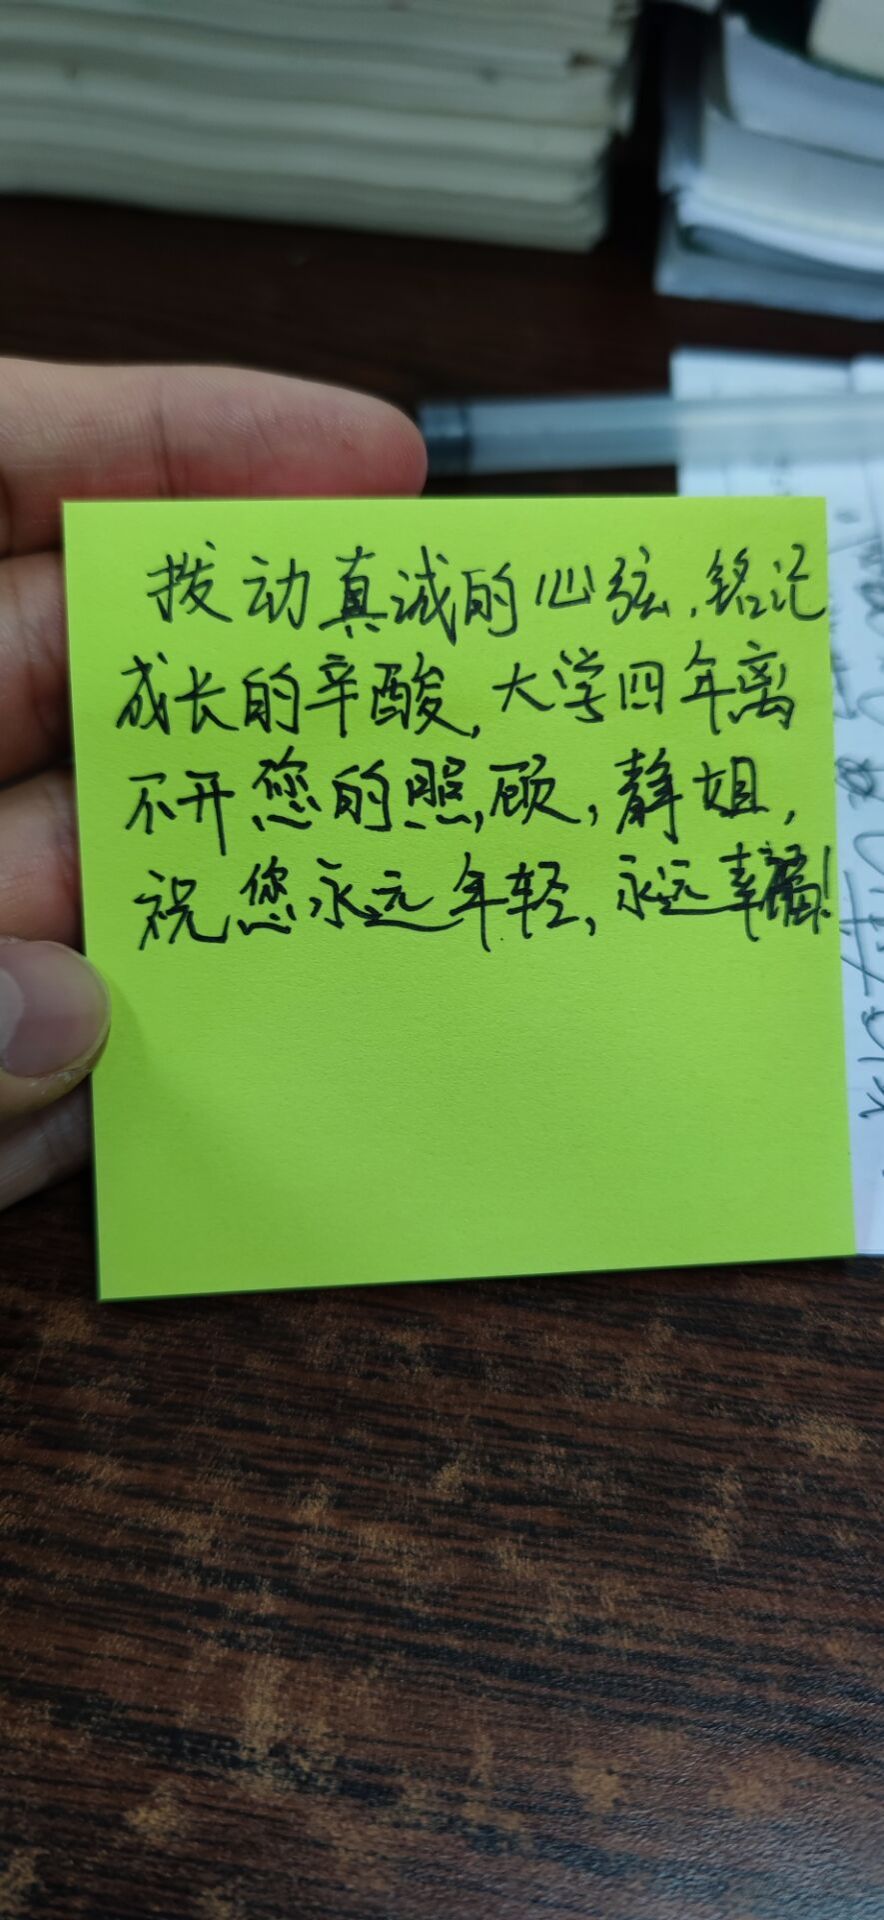 拨动真诚的心弦,铭记
成长的辛酸,大学四年离
不开您的照顾,静姐,
祝您永远年轻,永远幸福!